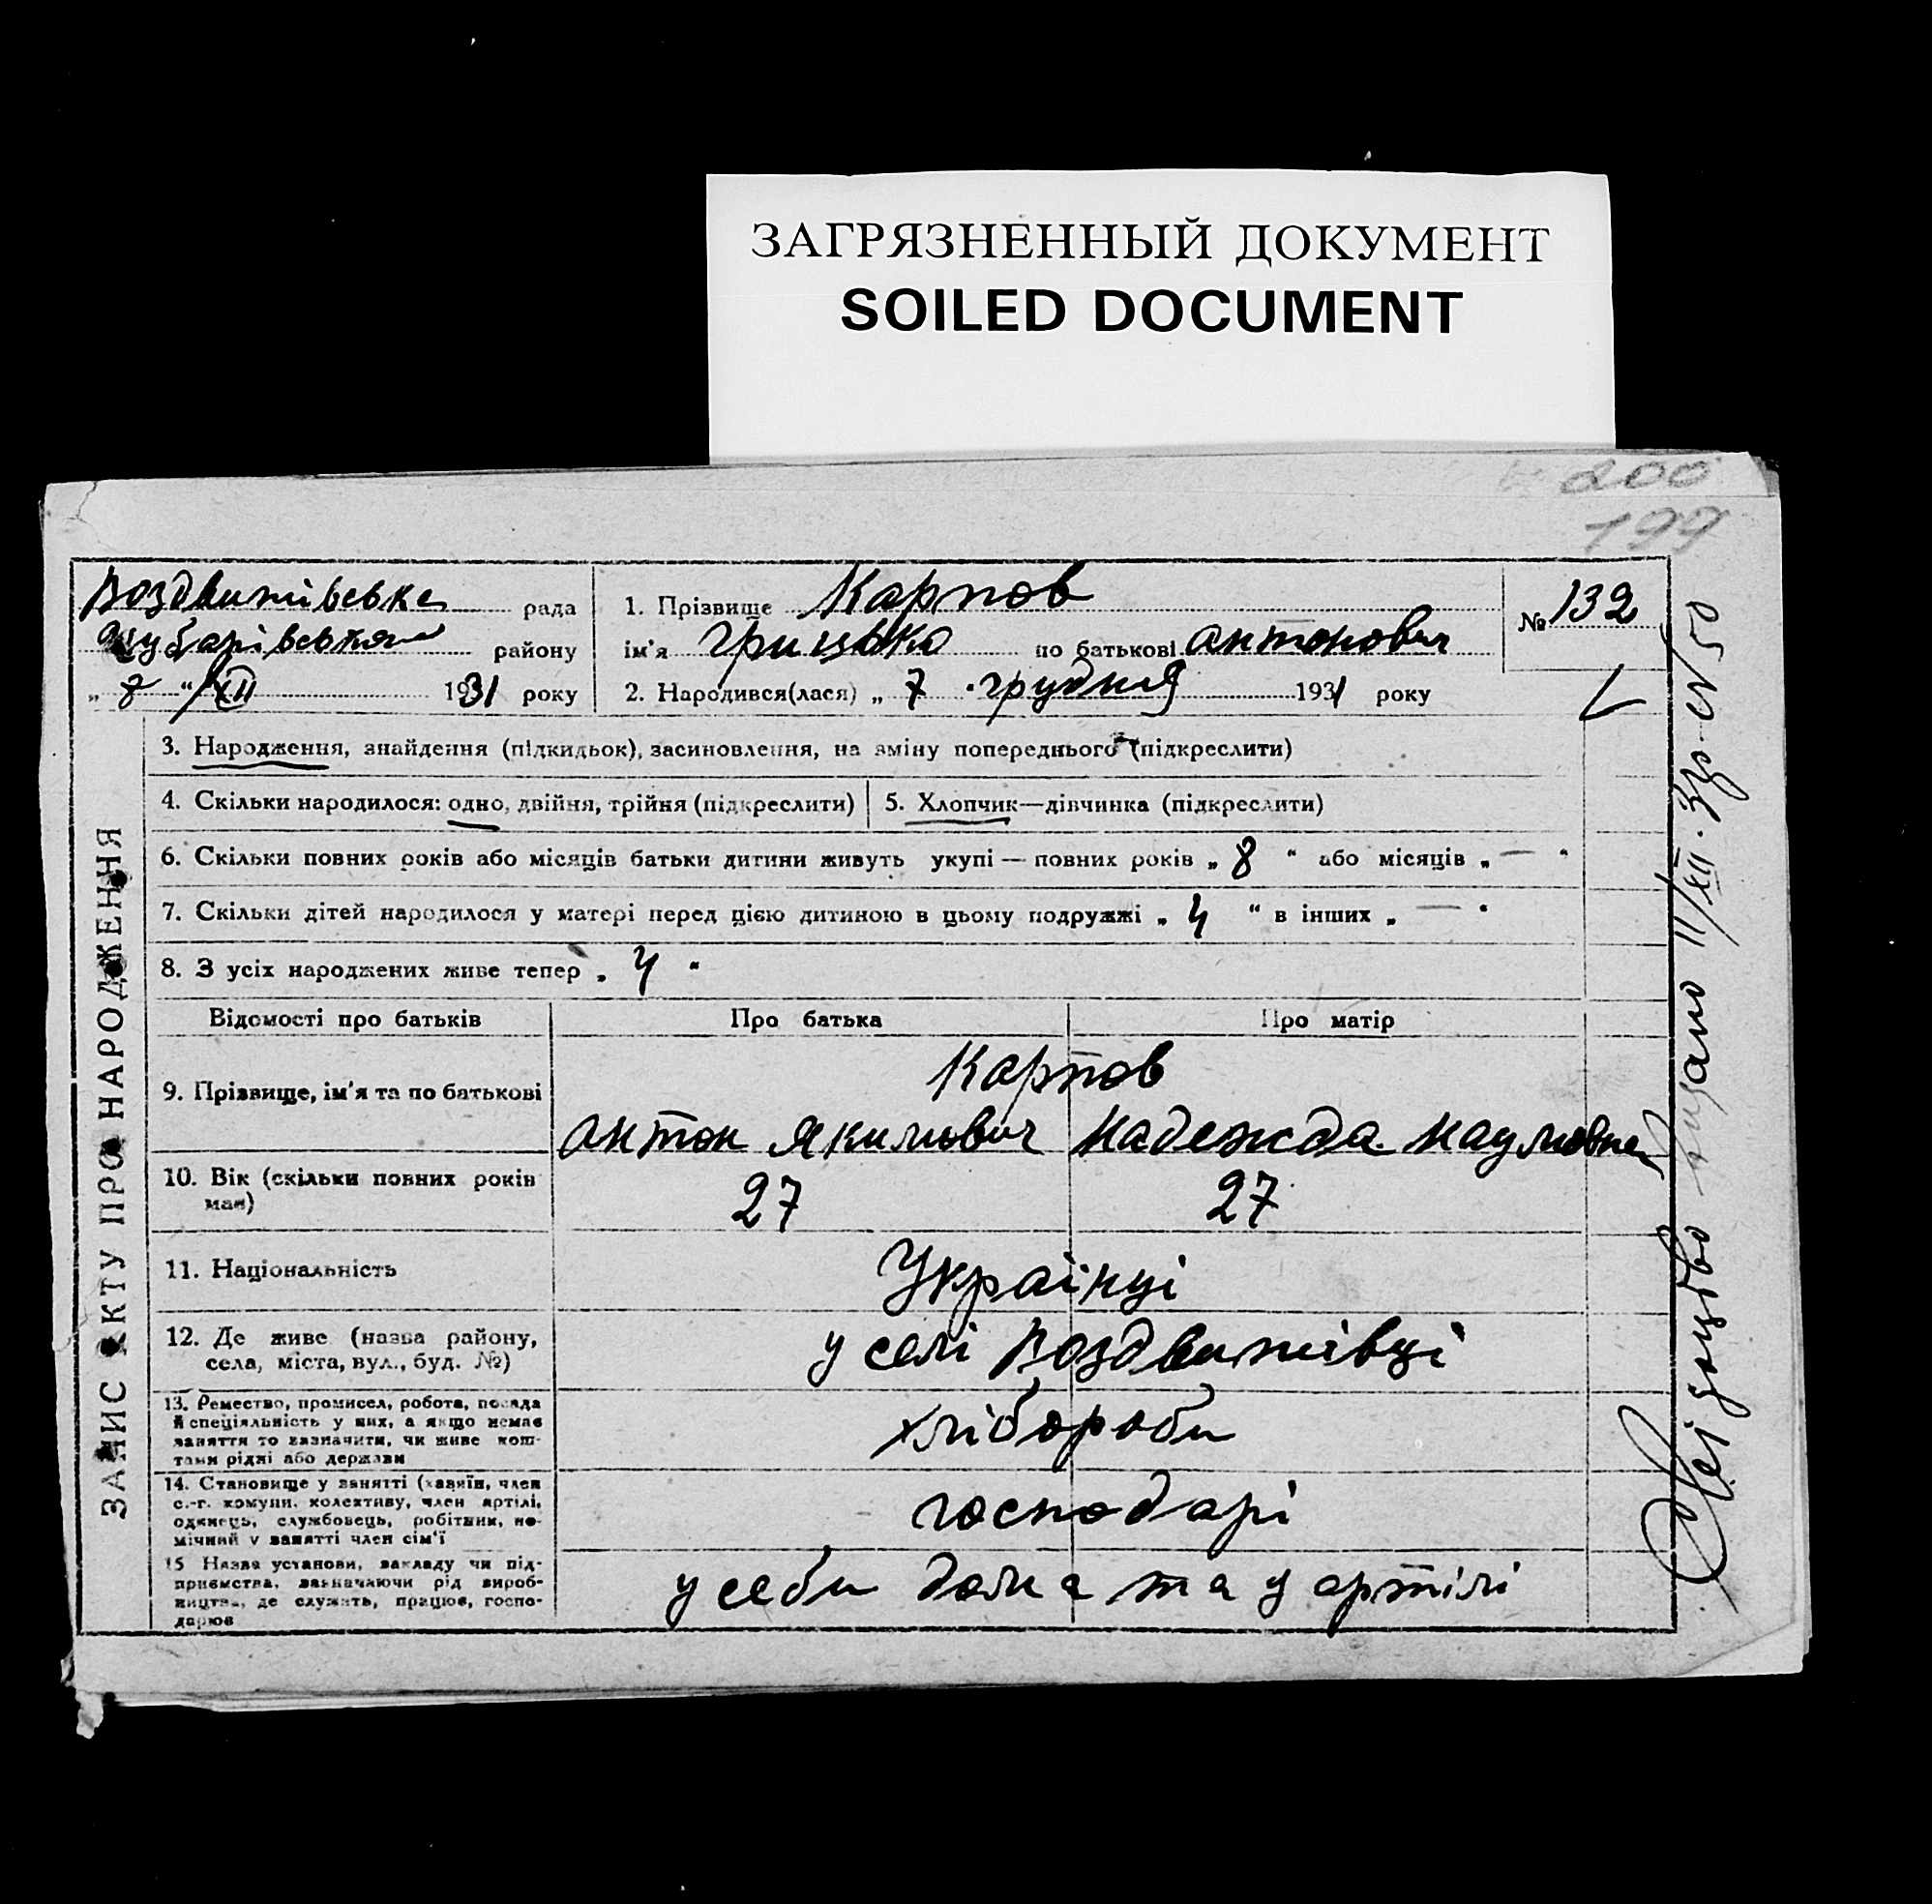 ЗАГРЯЗНЕННЫЙ ДОКУМЕНТ
SOILED DOCUMENT
200
199
Воздвижівська рада
району
„ 7 “ XII 1931 року
1. Прізвище Карпов
ім'я Грицько по батькові Антонович
2. Народився(лася) „ 7 грудня 1931 року
№ 132
3. Народження, знайдення (підкидьок), засиновлення, на зміну попереднього (підкреслити)
4. Скільки народилося: одно, двійня, трійня (підкреслити)
5. Хлопчик—дівчинка (підкреслити)
6. Скільки повних років або місяців батьки дитини живуть укупі — повних років „ 8 “ або місяців „ — “
7. Скільки дітей народилося у матері перед цією дитиною в цьому подружжі „ 4 “ в інших „ — “
8. З усіх народжених живе тепер „ 4 “
Відомості про батьків
Про батька
Про матір
9. Прізвище, ім'я та по батькові
Карпов
Антон Якимович
Надежда Наумовна
10. Вік (скільки повних років
має)
27
27
11. Національність
Українці
12. Де живе (назва району,
села, міста, вул., буд. №)
у селі Воздвижівці
13. Ремество, промисел, робота, посада
й спеціяльність у них, а якщо немає
заняття то зазначити, чи живе кош-
тами рідні або держави
хлібороби
14. Становище у занятті (хазяїн, член
с.-г. комуни, колективу, член артілі,
одинець, службовець, робітник, по-
мічний у занятті член сім'ї
господарі
15 Назва установи, закладу чи під-
приємства, зазначаючи рід вироб-
ництва, де служить, працює, госпо-
дарює
у себи дома та у артілі
ЗАПИС АКТУ ПРО НАРОДЖЕННЯ
11/XII 31р. N 50